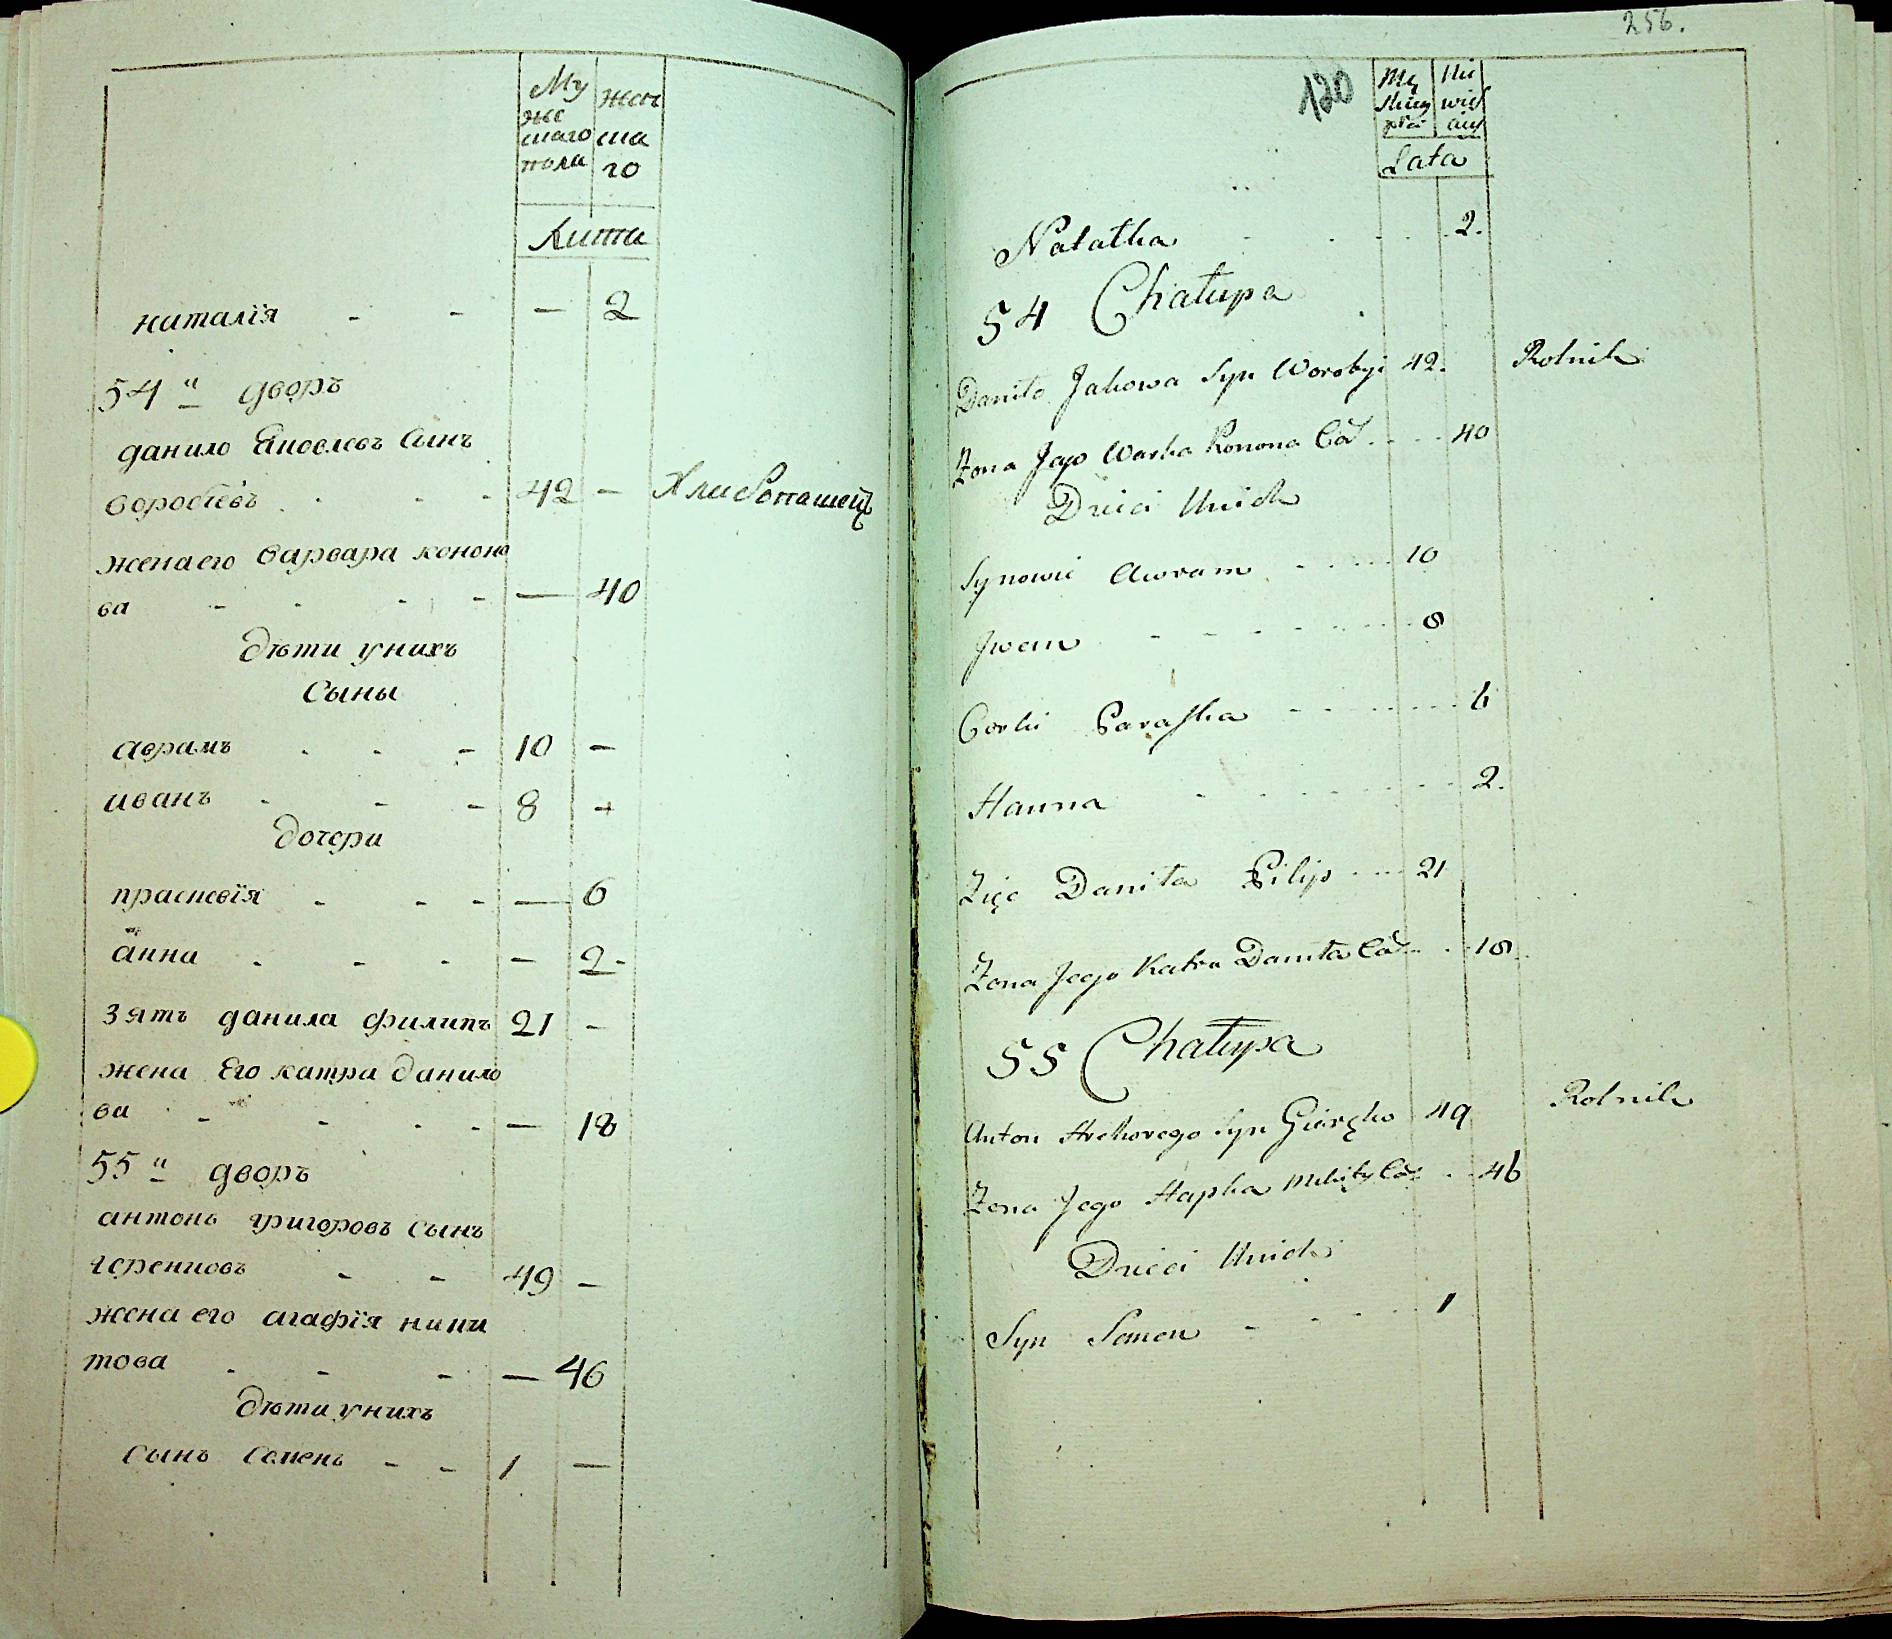 Му жен
же
скаго ска
пола го
Лита
наталїя - - — 2
54 й дворъ
данило Яковлевъ сынъ
воробїевъ . - - 42 — Хлибопашецъ
жена его варвара конона
ва - - - - — 40
дѣти у нихъ
сыны
аврамъ . - - 10 —
иванъ - - - 8 +
дочери
прасковїя - - - — 6
анна - - - — 2 -
зять данила филипъ 21 -
жена Его катра данило
ва - - - - — 18
55 й дворъ
антонъ григоровъ сынъ
геренковъ - - 49 —
жена его агафїя ники
това - - - — 46
дѣти у нихъ
сынъ семенъ - - 1 —
256.
120
Lata
Natałka 2.
54 Chałupa
Daniło Jakowa Syn Worobyi 42. Rolnik
Żona Jego Warka Konona Cór 40
Dzieci Unich
Synowie Awram 10
Jwan 8
Corki Paraska 6
Hanna 2.
Zięć Daniła Pilip 21
Żona Jego Katra Daniła Cór 18
55 Chałupa
Anton Hrehorego Syn 49 Rolnik
Żona Jego Hapka Mikity Cór 46
Dzieci Unich
Syn Semen 1